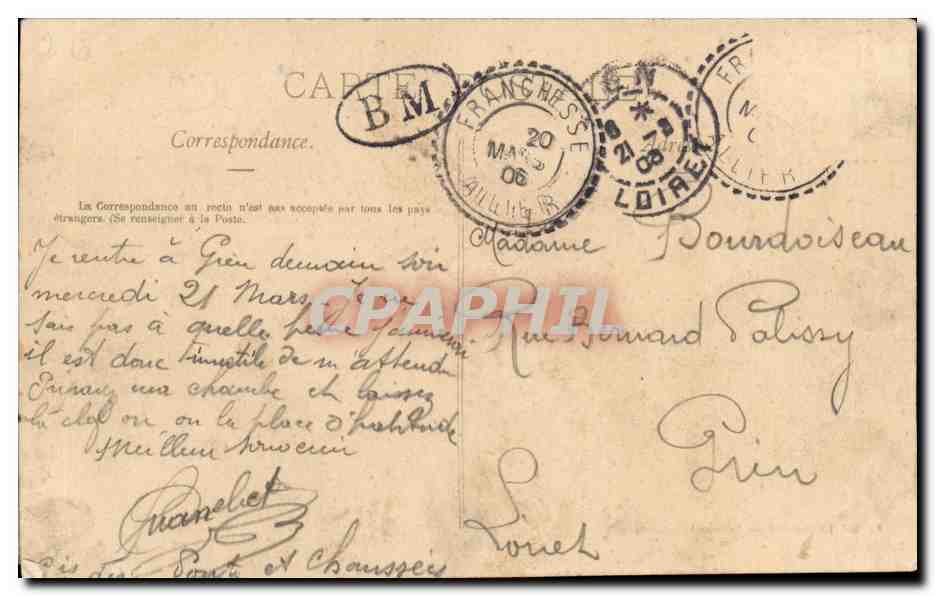 CARTE
Correspondance.
BM
FRANCHESSE
20
MARS
06
ALLIER
GIEN
*
21
06
LOIRET
FRA
LLIER
La Correspondance au recto n'est pas acceptée par tous les pays
étrangers. (Se renseigner à la Poste.
Je rentre à Gien demain soir
mercredi 21 Mars. Je ne
sais pas à quelle heure j'arriverai
il est donc inutile de m'attendre
ma chambre et laissez
la clef ou on la place d'habitude
Meilleur souvenir
des Ponts et Chaussées
Madame Bourdoiseau
Rue Bernard Palissy
Gien
Loiret
CPAPHIL